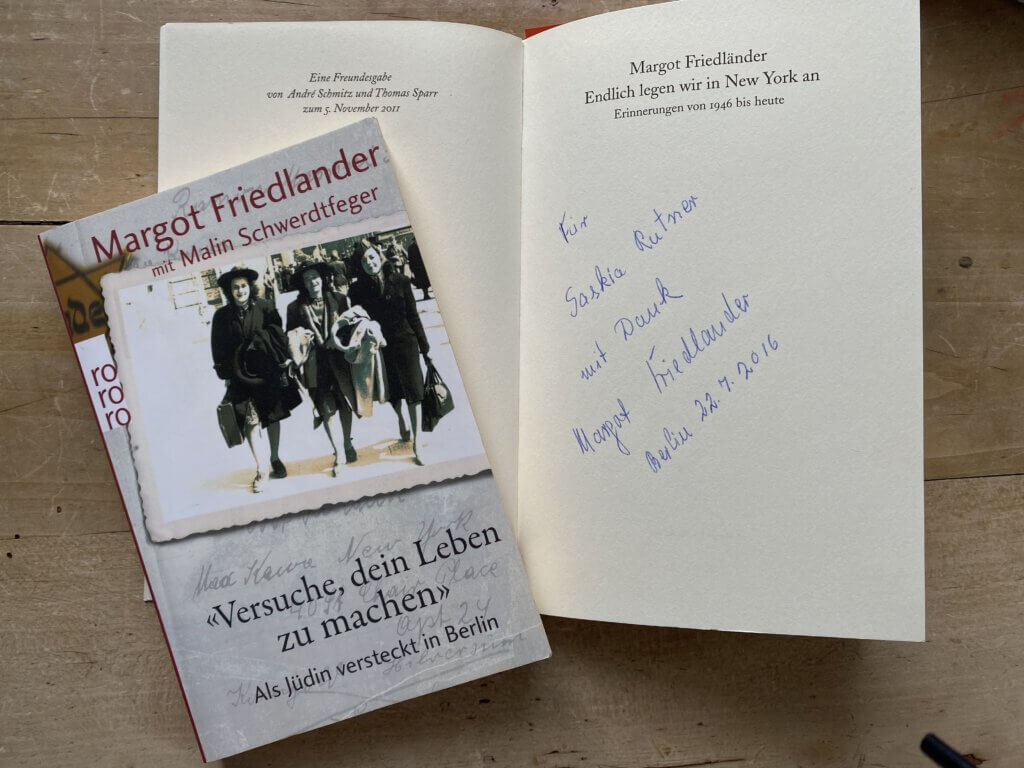 Eine Freundesgabe
von André Schmitz und Thomas Sparr
zum 5. November 2011
Margot Friedländer
Endlich legen wir in New York an
Erinnerungen von 1946 bis heute
Für
Saskia Rutner
mit Dank
Margot Friedlander
Berlin 22.7.2016
Margot Friedlander
mit Malin Schwerdtfeger
ro
ro
ro
New York
Place
Apt 24
«Versuche, dein Leben
zu machen»
Als Jüdin versteckt in Berlin